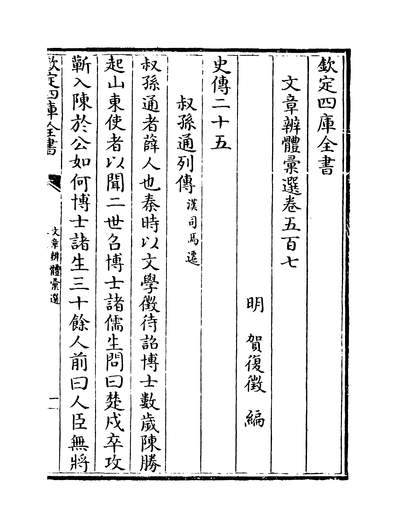 欽定四庫全書
文章辨體彙選卷五百七
明 賀復徵 編
史傳二十五
叔孫通列傳 漢司馬遷
叔孫通者薛人也秦時以文學徵待詔博士數歲陳勝
起山東使者以聞二世召博士諸儒生問曰楚戍卒攻
蘄入陳於公如何博士諸生三十餘人前曰人臣無將
欽定四庫全書
文章辨體彙選
一